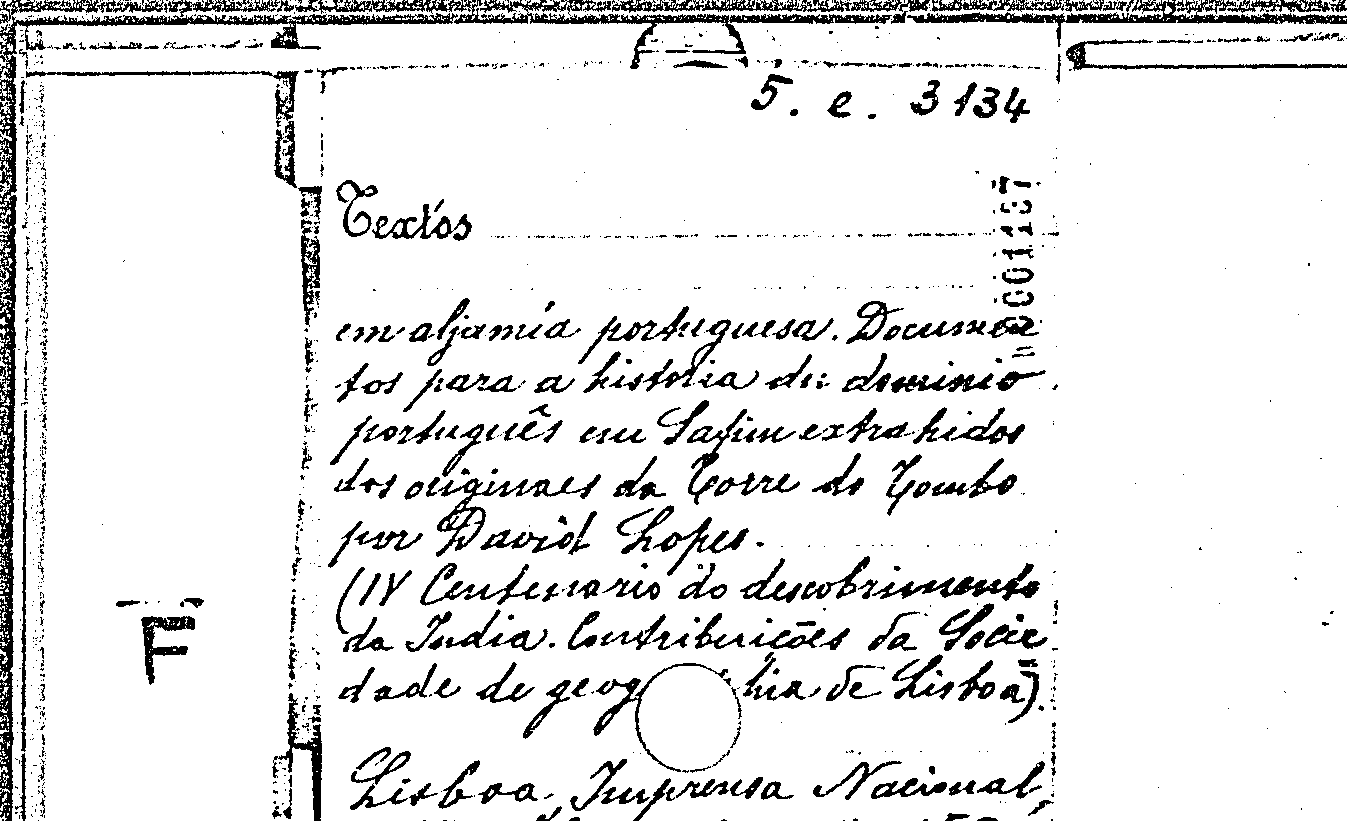 5. e. 3134
Textos
em aljamía portuguesa. Documen
tos para a historia do dominio
português em Safim extrahidos
dos originaes da Torre do Tombo
por David Lopes.
(IV Centenario do descobrimento
da India. Contribuições da Socie
dade de geog hia de Lisboa).
Lisboa, Imprensa Nacional,
F